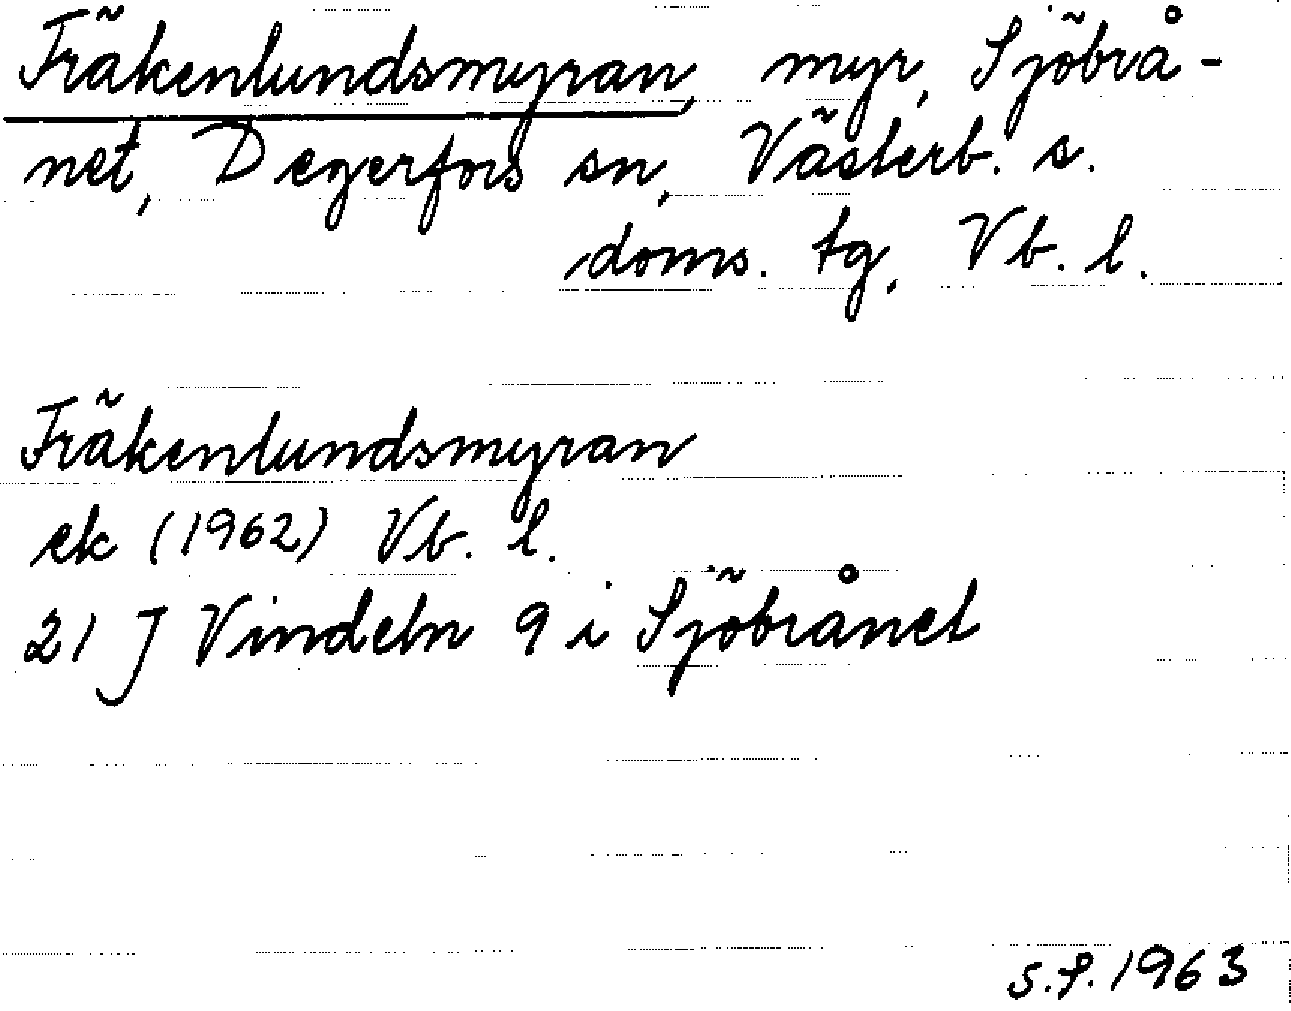 Fräkenlundsmyran, myr, Sjöbrå-
net, Degerfors sn, Västerb. s.
doms. tg, Vb. l.
Fräkenlundsmyran
ek (1962) Vb. l.
21 J Vindeln 9 i Sjöbrånet
S.F. 1963